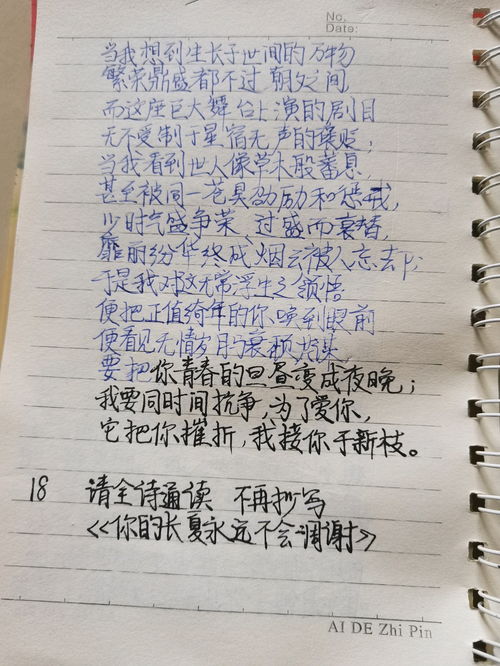 No.
Date:
当我想到生长于世间的万物
繁荣鼎盛都不过朝夕之间,
而这座巨大舞台上演的剧目
无不受制于星宿无声的褒贬;
当我看到世人像草木般蕃息,
甚至被同一苍昊劝励和惩戒,
少时气盛争荣、过盛而衰替,
靡丽纷华终成烟云被人忘去;
于是我对这无常浮生之领悟
便把正值绮年的你唤到眼前
便看见无情岁月与衰颓
要把你青春的白昼变成夜晚;
我要同时间抗争,为了爱你,
它把你摧折,我接你于新枝。
18 请全诗通读 不再抄写
<<你的长夏永远不会凋谢>>
AI DE Zhi Pin